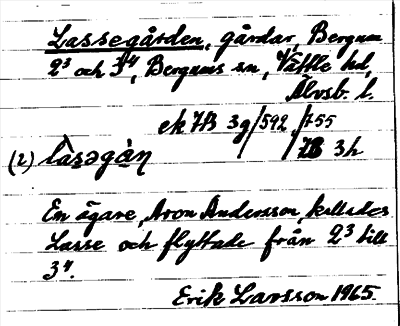 Lassegården, gårdar, Bergum
2³ och 3⁴, Bergums sn, Vättle hd,
Älvsb. l.
ek 7B 3g/592, /755
7B 3h
(2) làsəgàn
En ägare, Aron Andersson, kallades
Lasse och flyttade från 2³ till
3⁴.
Erik Larsson 1965.